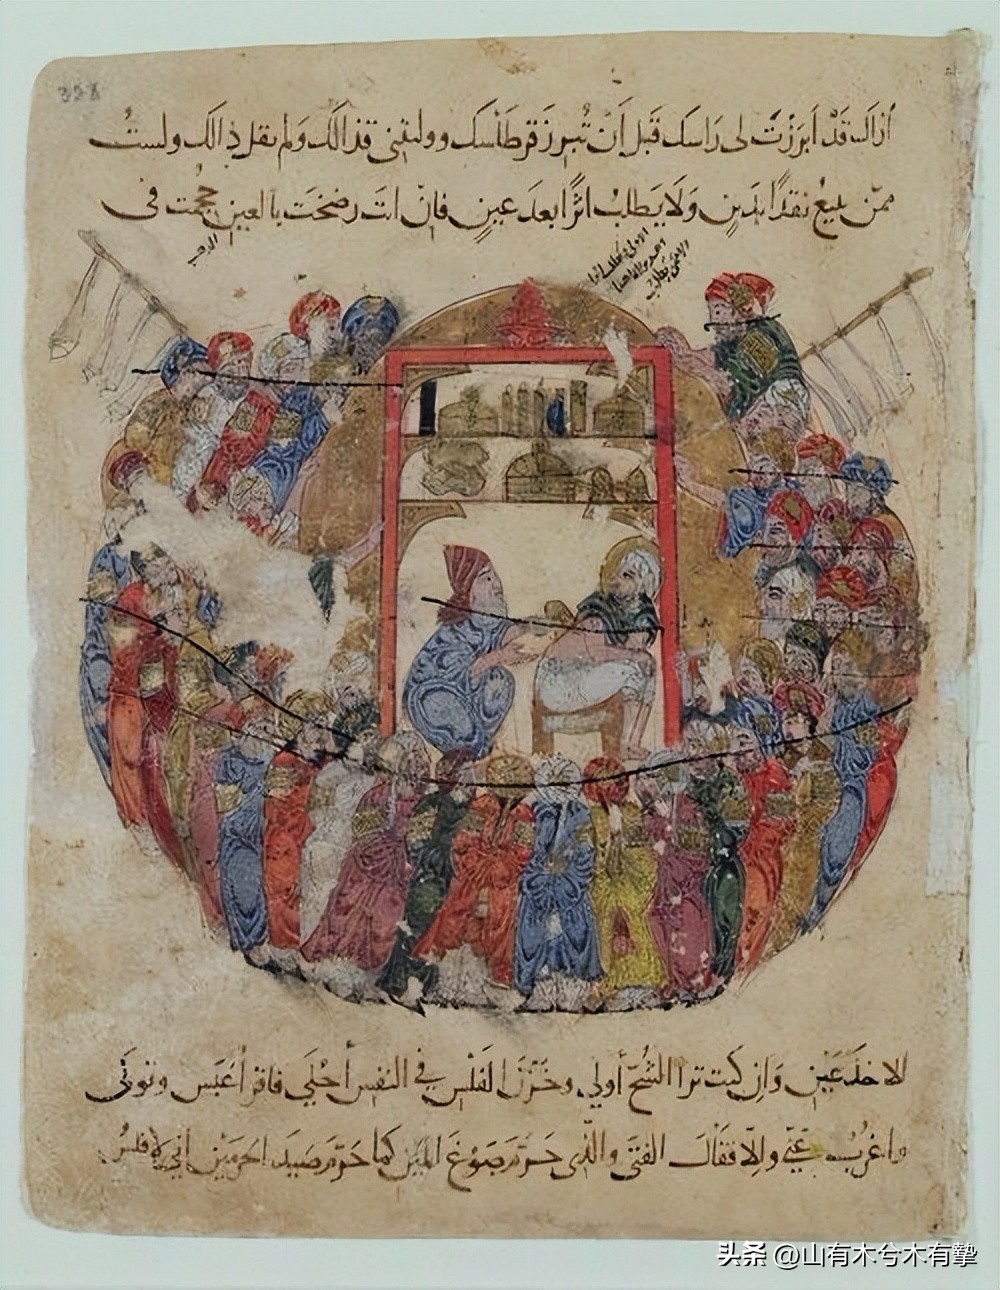 أراك قَدْ أَبرَزْتَ لى رَاسَكَ قَبلَ أَنْ تُبرِزَ قرطَاسَكَ وولَّيتنى قذالَكَ ولم تقل ذالك ولستُ
ممّن يبيعُ نقدًا بدَينٍ وَلَا يَطلبُ اثرًا بعدَ عينٍ فإن انتَ رضختَ بالعينِ حُجمت فى
الاخدَعَينِ وَان كنت ترا الشُحّ أولى وخَزْنَ الفَلْسِ فى النفسِ أحْلَى فاقرأ عَبَسَ وتولَّى
واغرُب عَنّى والّا فقالَ الفتَى والذى حَرّمَ صَوْغَ المَينِ كما حَرّمَ صَيدَ الحَرمَينِ انى لافلسُ
头条 @山有木兮木有摯